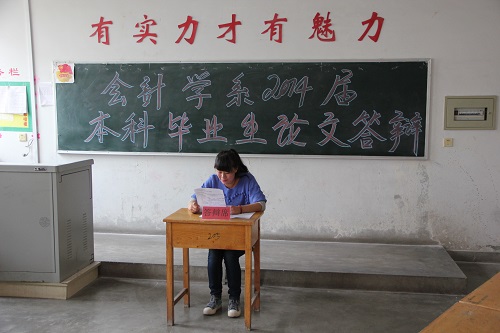 有实力才有魅力
务栏
会计学系2014届
本科毕业生论文答辩
答辩席